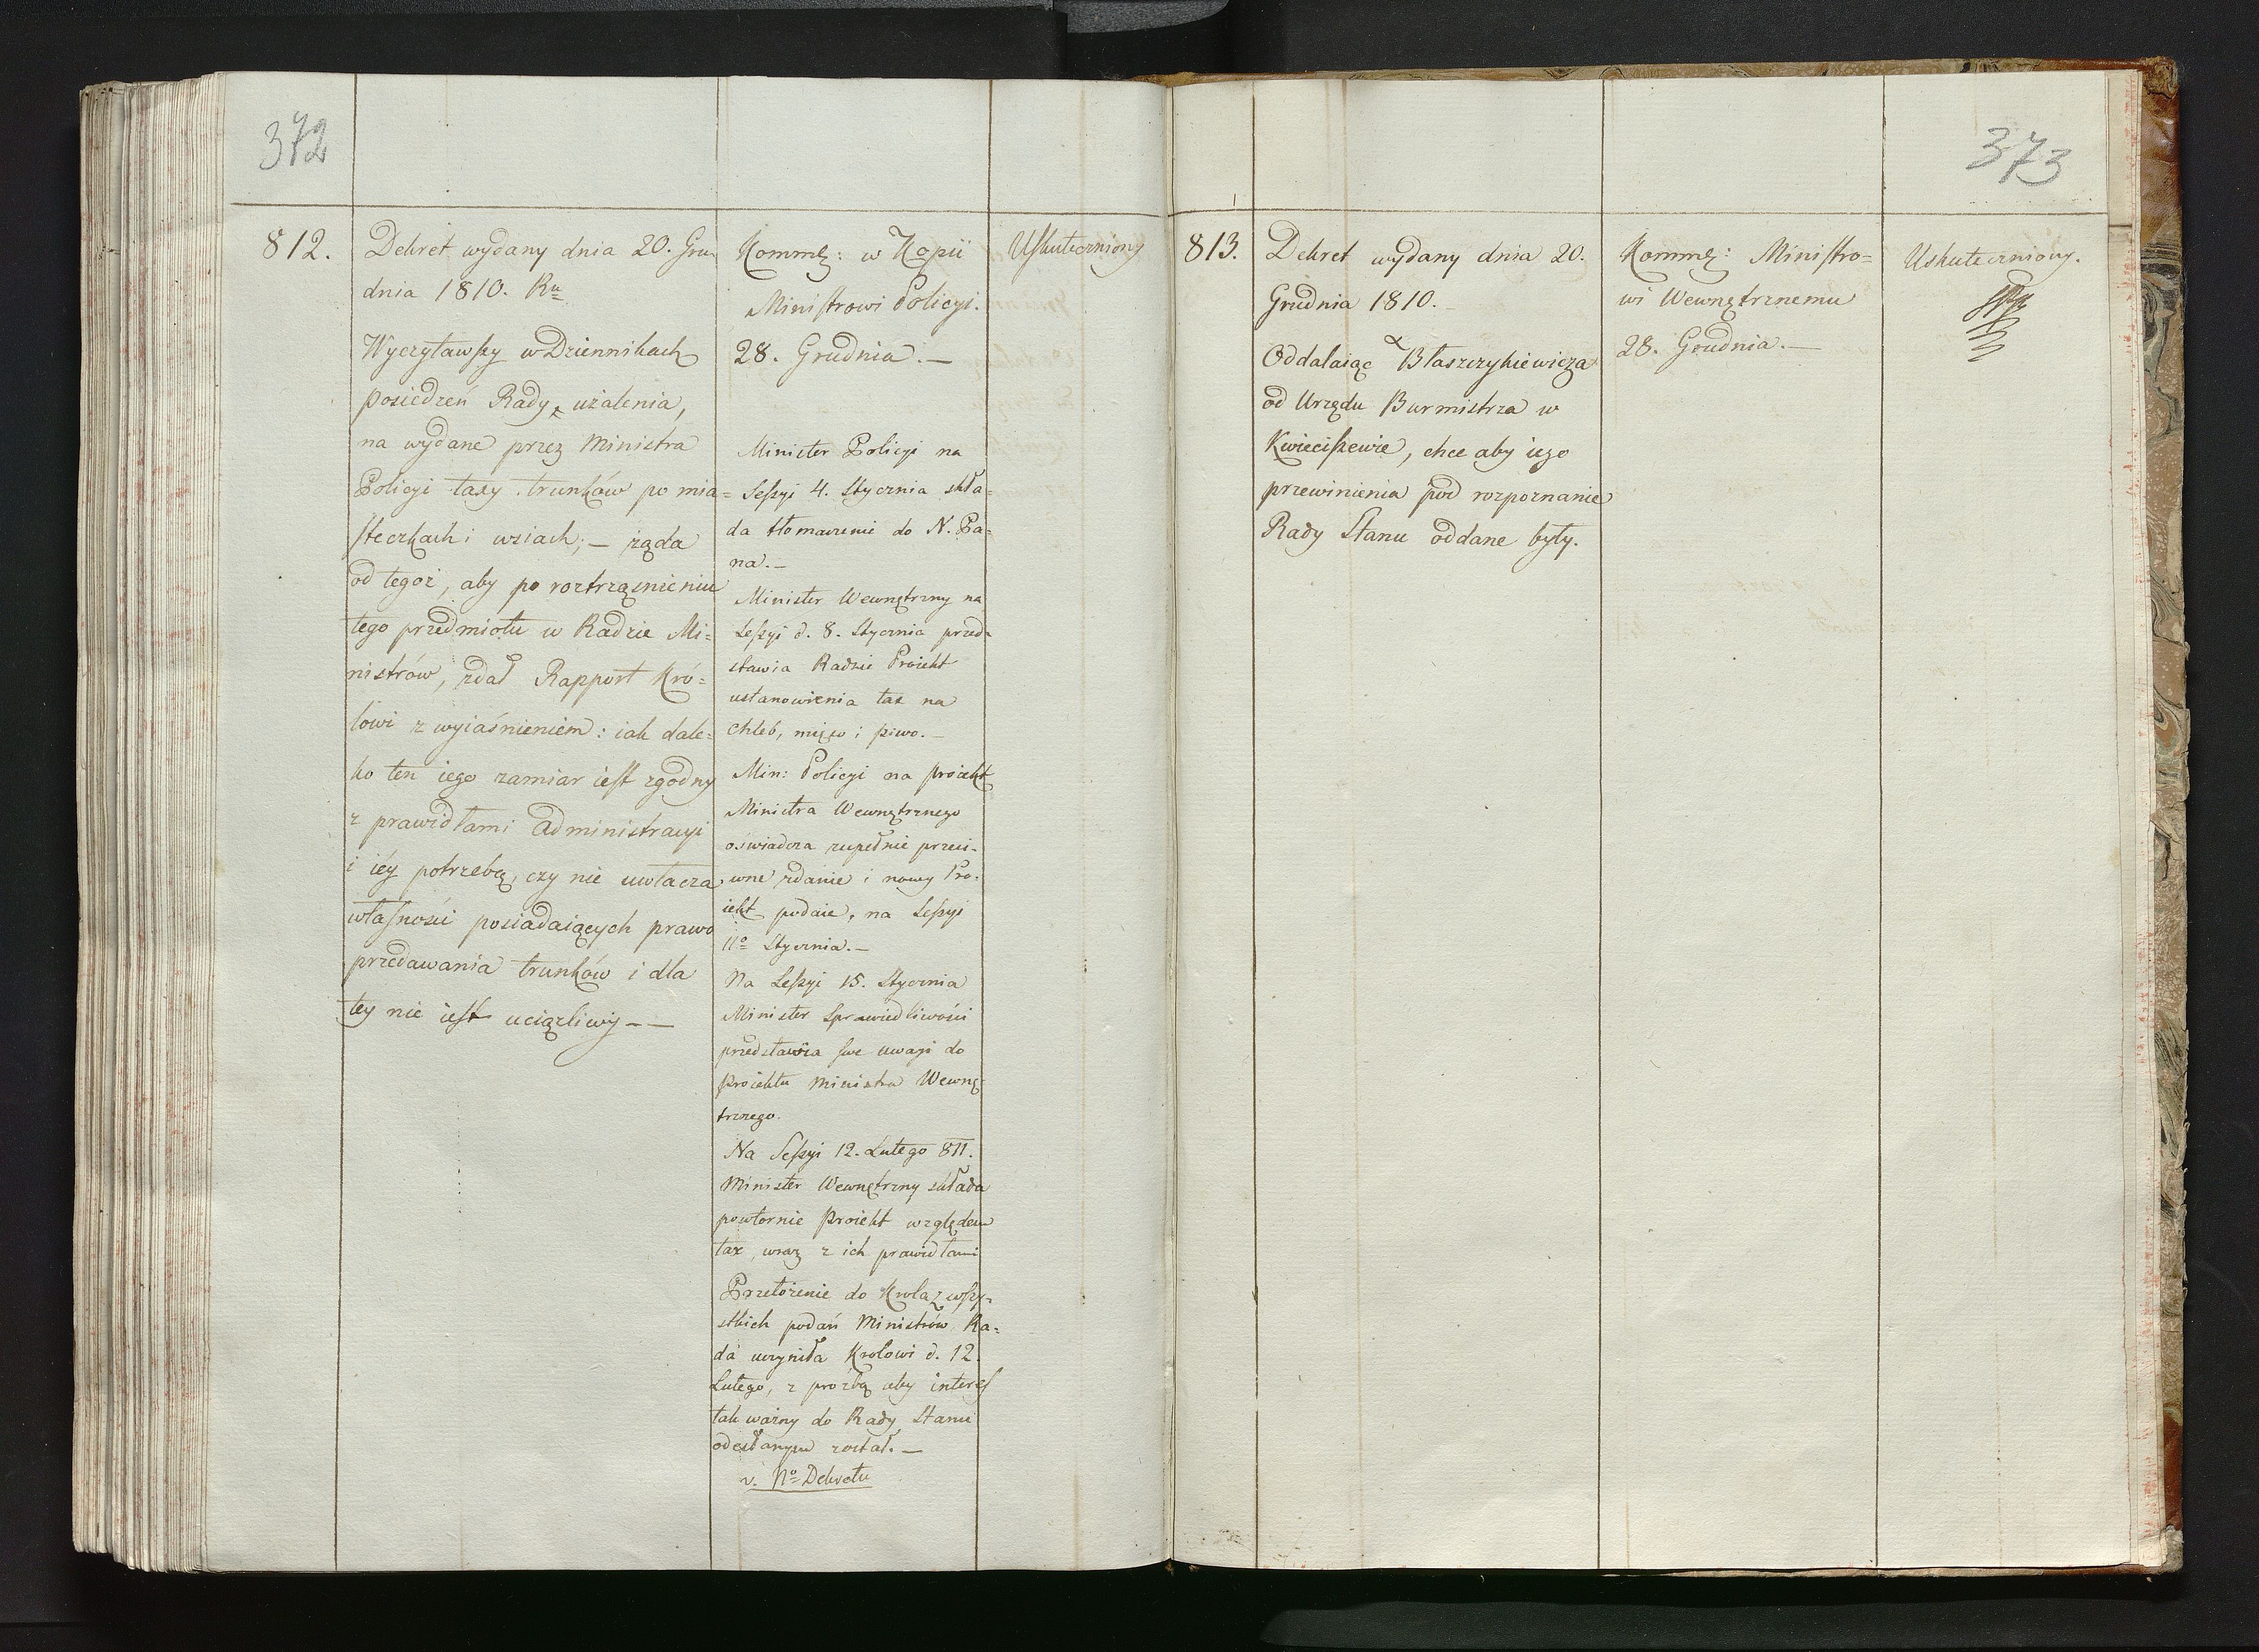 372
812.
Dekret wydany dnia 20. Gru
dnia 1810. Ru
Wyczytawszy w Dziennikach
posiedzeń Rady, użalenia,
na wydane przez Ministra
Policyi taxy trunków po mia=
steczkach i wsiach; — żąda
od tegoż, aby po roztrząśnieniu
tego przedmiotu w Radzie Mi=
nistrów, zdał Rapport Kró=
lowi z wyiaśnieniem: iak dale=
ko ten iego zamiar iest zgodny
z prawidłami administracyi
i iéy potrzebą, czy nie uwłacza
własności posiadaiących prawo
przedawania trunków i dla
tey nie iest uciążliwy — —
Kommlz: w Kopii
Ministrowi Policyi.
28. Grudnia. —
Minister Policyi na
Sessyi 4. Stycznia skła=
da tłomaczenie do N. Pa=
na. —
Minister Wewnętrzny na
Sessyi d. 8. Stycznia przed=
stawia Radzie Proiekt
ustanowienia tax na
chleb, mięso i piwo. —
Min: Policyi na proiekt
Ministra Wewnętrznego
oświadcza zupełnie przeci=
wne zdanie i nowy Pro=
iekt podaie, na Sessyi
11º Stycznia. —
Na Sessyi 15. Stycznia
Minister Sprawiedliwości
przedstawia swe uwagi do
proiektu Ministra Wewnę=
trznego.
Na Sessyi 12. Lutego 811.
Minister Wewnętrzny składa
powtornie Proiekt względem
tax, wraz z ich prawidłami
Przełożenie do Krola z wszy=
stkich podań Ministrów Ra=
da uczyniła Krolowi d. 12.
Lutego, z prożbą aby interes
tak ważny do Rady Stanu
odesłanym został. —
v. Nº Dekretu
Uskuteczniony
373
813.
Dekret wydany dnia 20.
Grudnia 1810.
Oddalaiąc Błaszczykiewicza
od Urzędu Burmistrza w
Kwieciszewie, chce aby iego
przewinienia pod rozpoznanie
Rady Stanu oddane były.
Kommlz: Ministro=
wi Wewnętrznemu
28. Grudnia. —
Uskuteczniony.